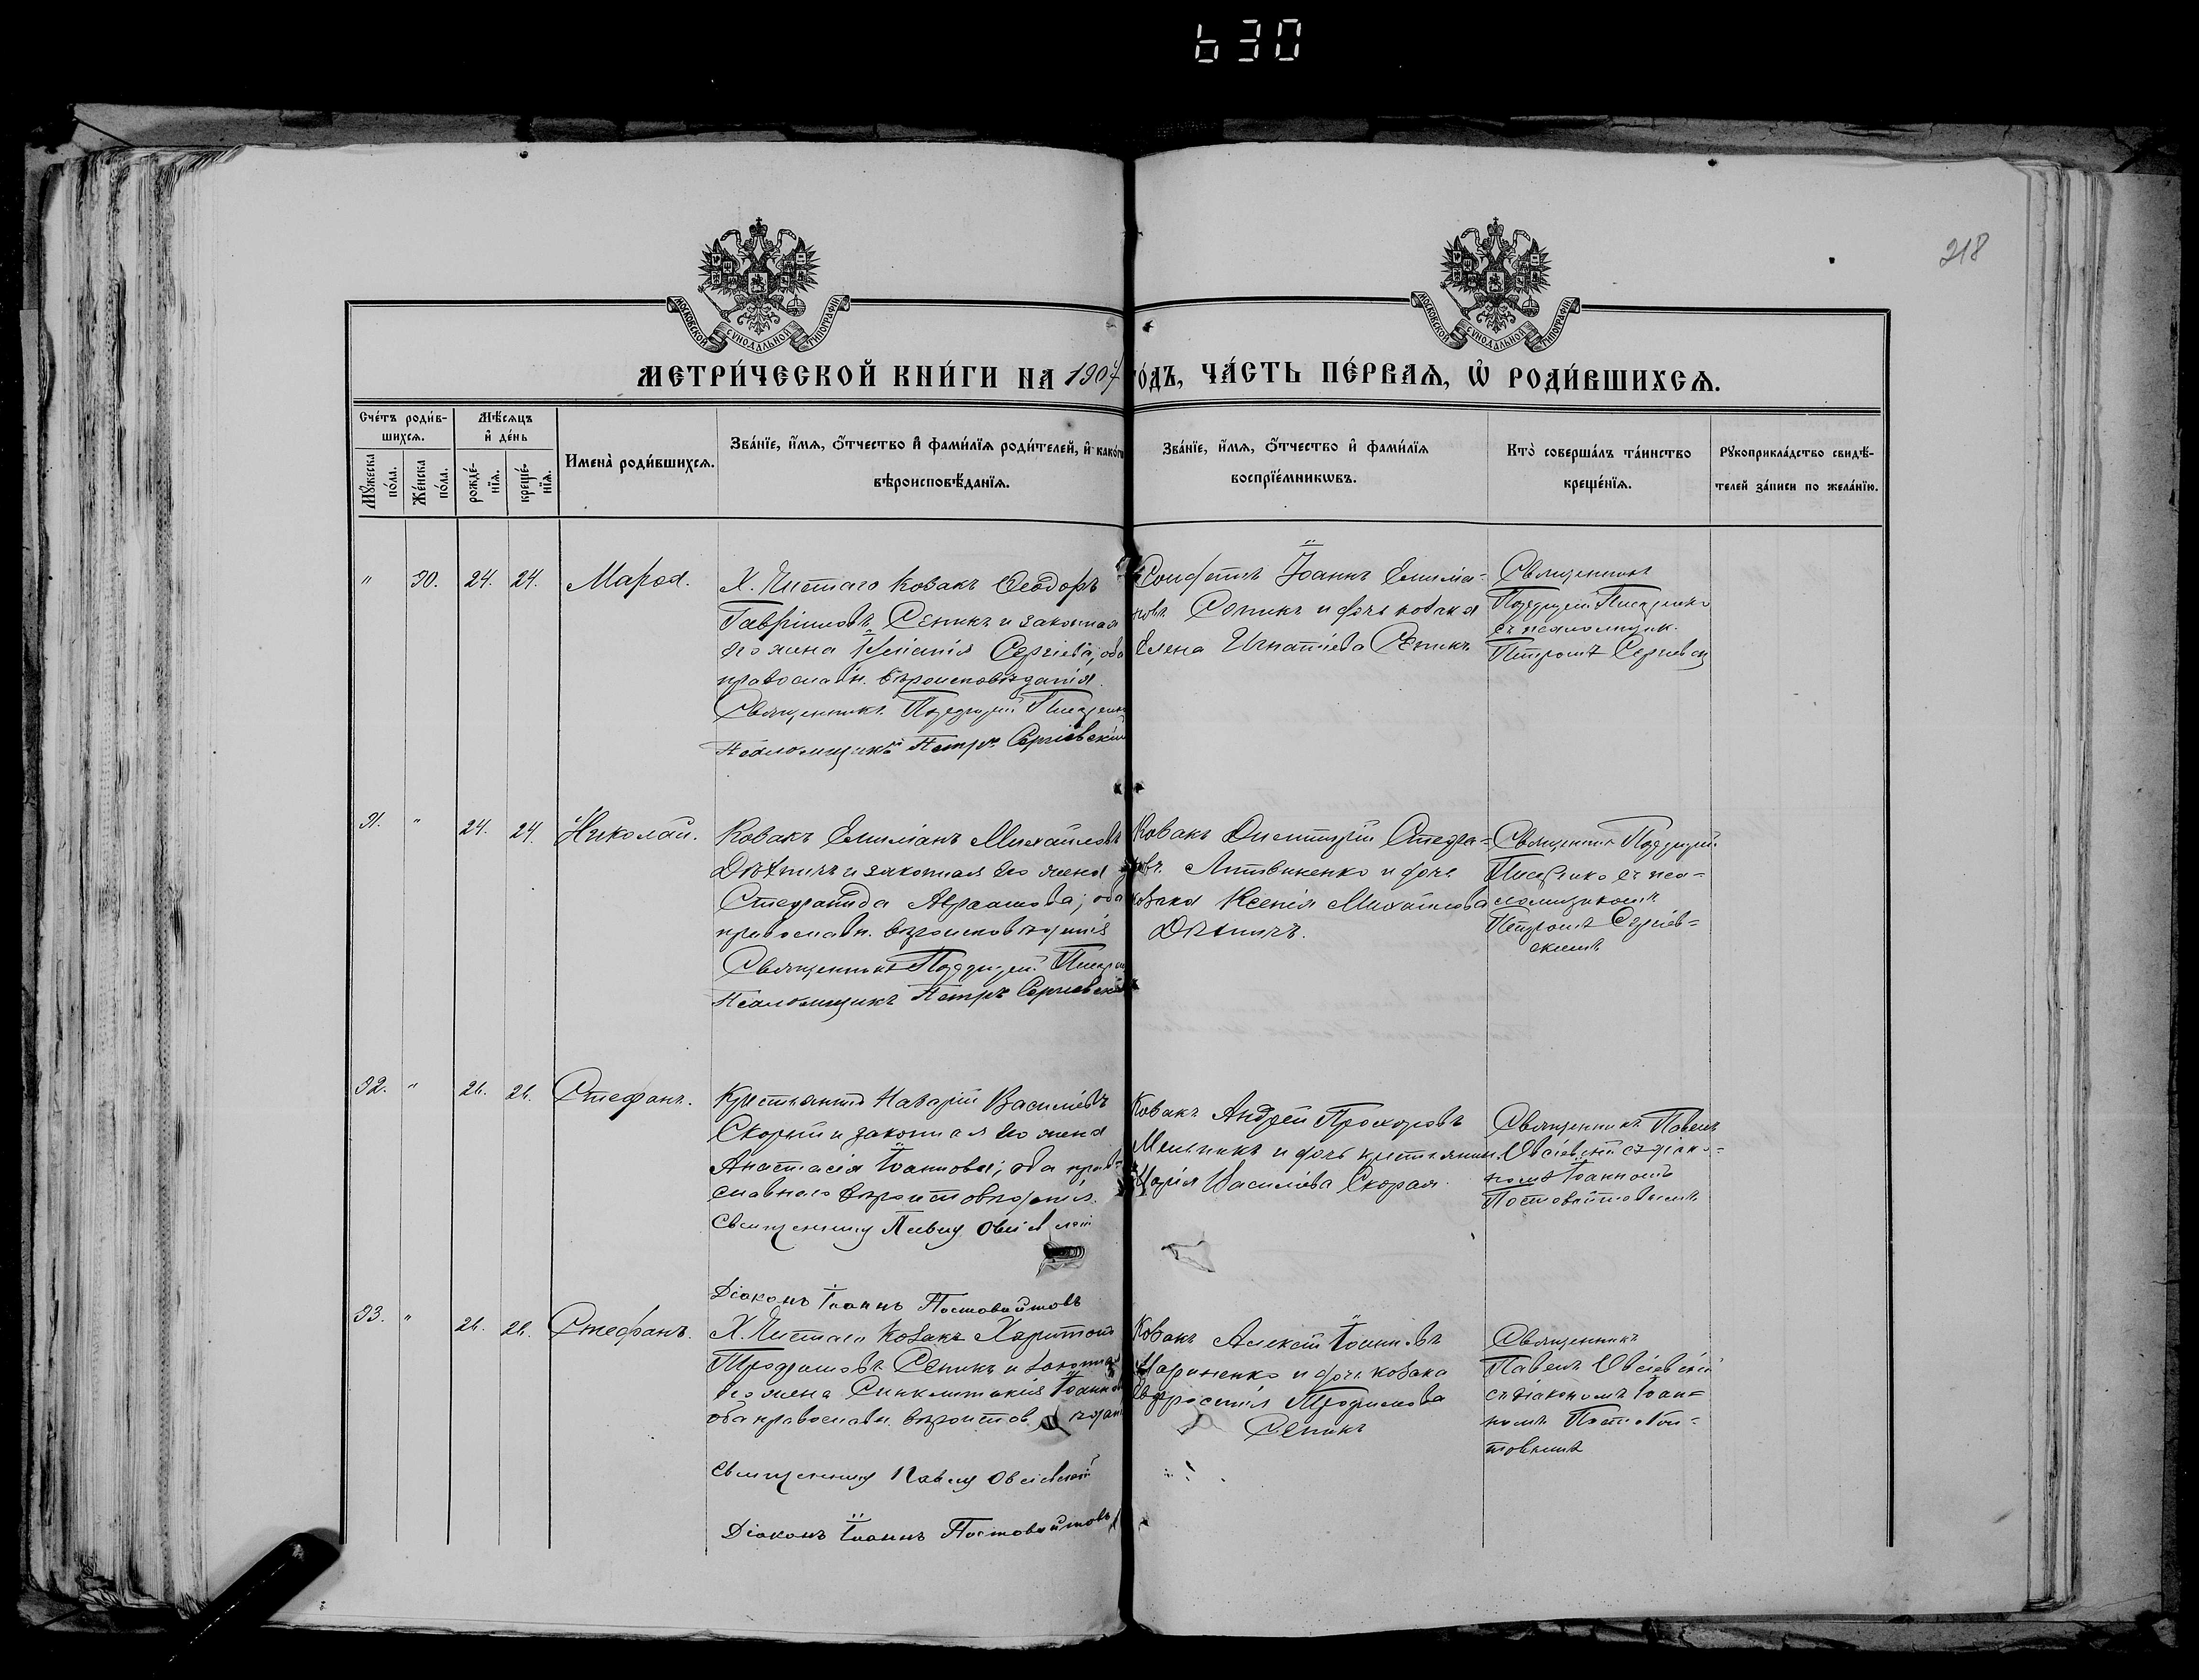 630
218
МОСКОВСКОЙ СѴНОДАЛЬНОЙ ТИПОГРАФІИ
МОСКОВСКОЙ СѴНОДАЛЬНОЙ ТИПОГРАФІИ
МЕТРИ́ЧЕСКОЙ КНИ́ГИ НА 1907 го́дъ, ЧА́СТЬ ПЕ́РВАѦ, Ѡ҆ РОДИ́ВШИХСѦ.
Сче́тъ роди́в-
шихсѧ.
Мꙋ́жеска по́ла.
Же́нска по́ла.
Мѣ́сѧцъ
и҆ де́нь
рожде́-нїѧ.
креще́-нїѧ.
Имена̀ роди́вшихсѧ.
Зва́нїе, и҆́мѧ, ѻ҆́тчество и҆ фами́лїѧ роди́телей, и҆ како́гѡ
вѣроисповѣ́данїѧ.
Зва́нїе, и҆́мѧ, ѻ҆́тчество и҆ фами́лїѧ
воспрїе́мникѡвъ.
Кто̀ соверша́лъ та́инство
креще́нїѧ.
Рꙋкоприкла́дство свидѣ́-
телей за́писи по жела́нїю.
" 30. 24. 24.
Х. Чистаго Козакъ Ѳеодоръ
Гавріиловъ Сеникъ и законная
его жена Сергіева; оба
православн. вѣроисповѣданія.
Священникъ
Псаломщикъ Петръ Сергіевскій
Іоаннъ Емилiа-
новъ и дочь козака
Елена Игнатіева Сеникъ
Священникъ
съ псаломщик.
Петромъ
31. " 24. 24. Николай.
Козакъ Емиліанъ Михайловъ
и законная его жена
Стефанида Авраамова; оба
православн. вѣроисповѣданія
Священникъ
Псаломщикъ Петръ Сергіевскій
Козакъ Димитрій Стефа-
новъ Литвиненко и дочь
козака Ксенія Михайлова
Священникъ
съ пса-
ломщикомъ
Петромъ Сергіев-
скимъ
32. " 26. 26. Стефанъ.
Крестьянинъ Назарій Василіевъ
Скорый и законная его жена
Анастасія Іоаннова; оба право-
славнаго вѣроисповѣданія.
Священникъ Павелъ Овсіевскій
Діаконъ Іоаннъ Постовойтовъ
Козакъ Андрей Прохоровъ
Мельникъ и дочь крестьянина
Марія Василіева Скорая.
Священникъ Павелъ
Овсіевскій съ діако-
номъ Іоанномъ
Постовойтовымъ
33. " 26. 26. Стефанъ.
Х. Чистаго Козакъ Харитонъ
Трофимовъ Сеникъ и законная
его жена Синклитикія Іоаннова
оба православн. вѣроисповѣдан
Священникъ Павелъ Овсіевскій
Діаконъ Іоаннъ Постовойтовъ
Козакъ Алексій Іоанновъ
Мариненко и дочь козака
Трофимова
Сеникъ
Священникъ
Павелъ Овсіевскій
съ діакономъ Іоан-
номъ Постовой-
товымъ